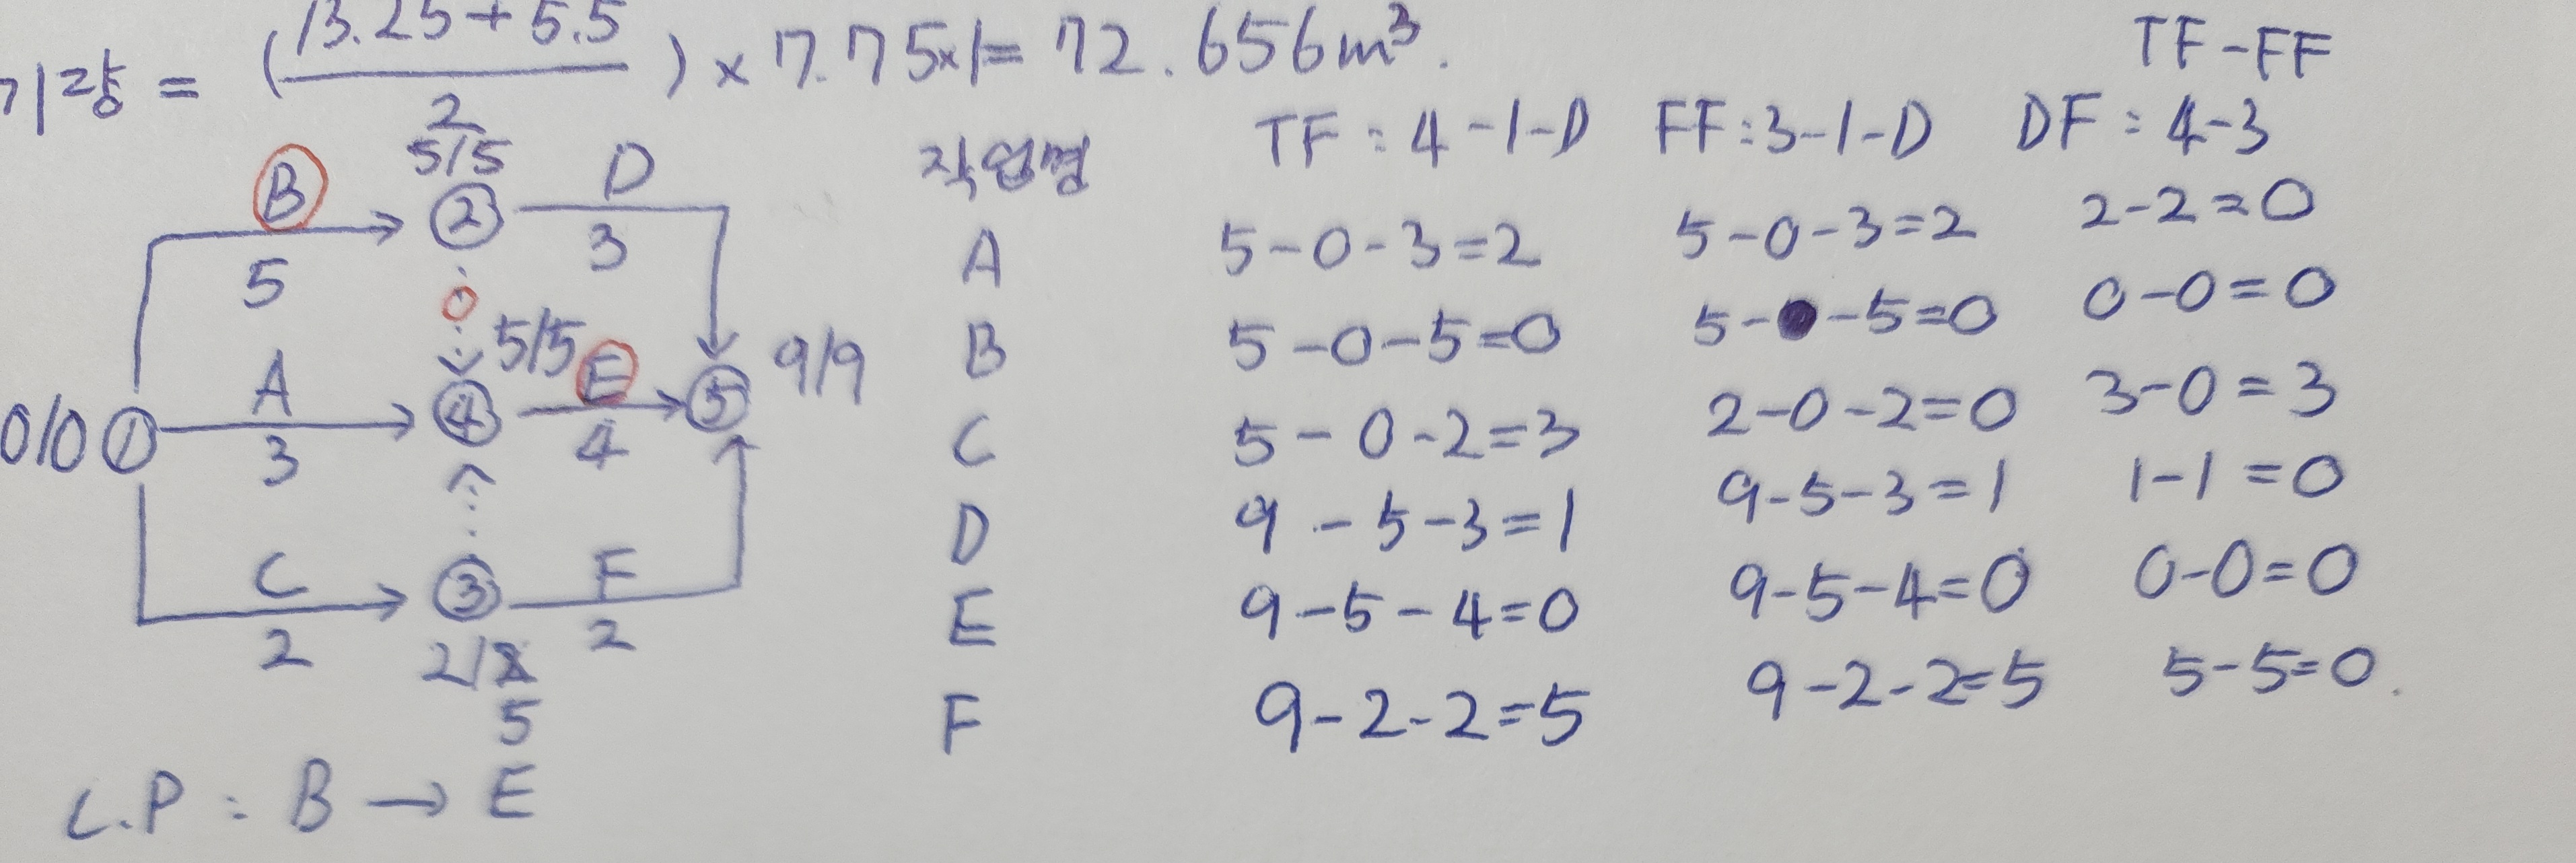 기량 = (13.25+5.5 / 2) × 7.75×1= 72.656m³.
TF-FF
작업명 TF : 4-1-D FF:3-1-D DF : 4-3
A 5-0-3=2 5-0-3=2 2-2=0
B 5-0-5=0 5- -5=0 0-0=0
C 5-0-2=3 2-0-2=0 3-0=3
D 9-5-3=1 9-5-3=1 1-1=0
E 9-5-4=0 9-5-4=0 0-0=0
F 9-2-2=5 9-2-2=5 5-5=0.
5/5
B ② D
5 3
0
5/5
A ④ E ⑤ 9/9
0/0 ① 3 4
C ③ F
2 2/ 2
5
C.P : B → E